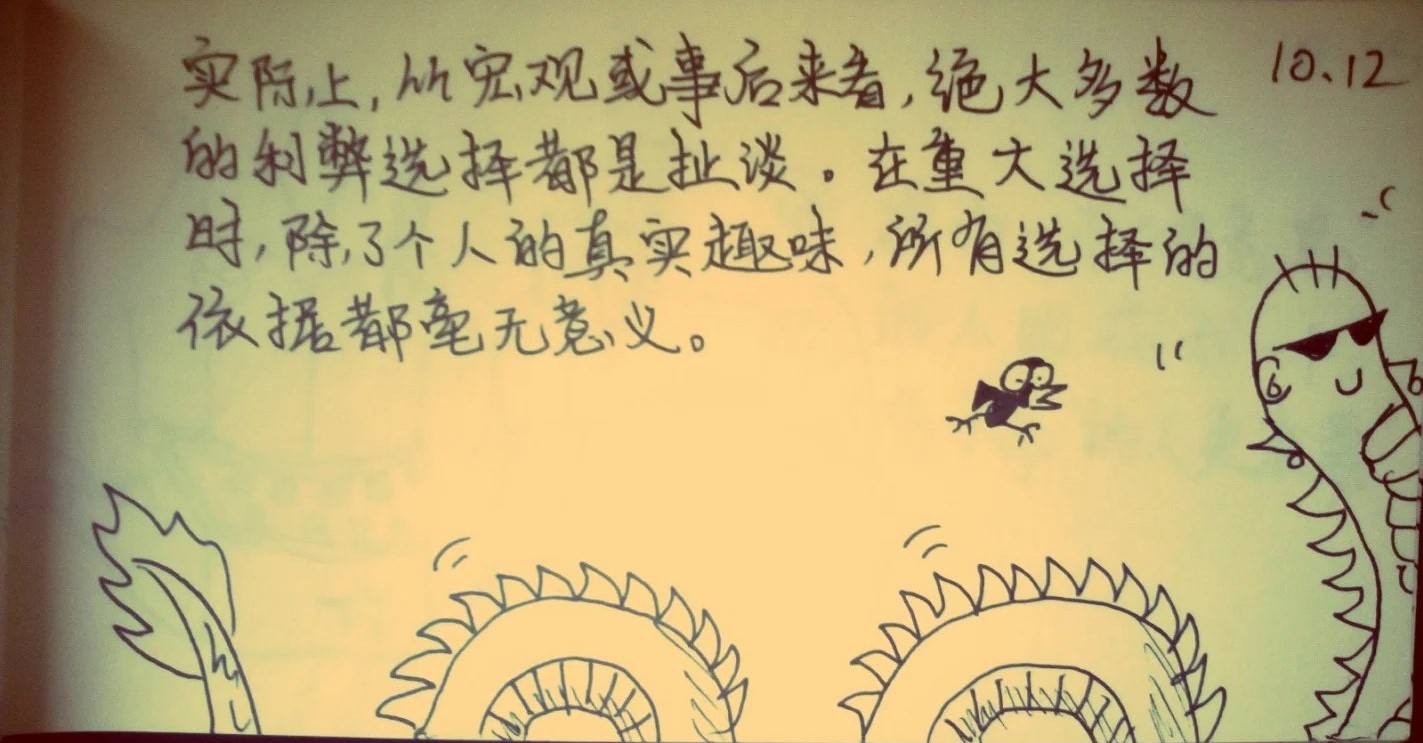 实际上，从宏观或事后来看，绝大多数
10.12
的利弊选择都是扯谈。在重大选择
时，除了个人的真实趣味，所有选择的
依据都毫无意义。